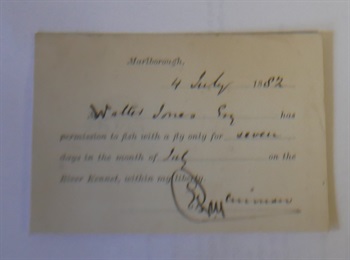 Marlborough,
4 July 1882
Walter Jones Esq has
permission to fish with a fly only for seven
days in the month of July on the
River Kennet, within my liberty.